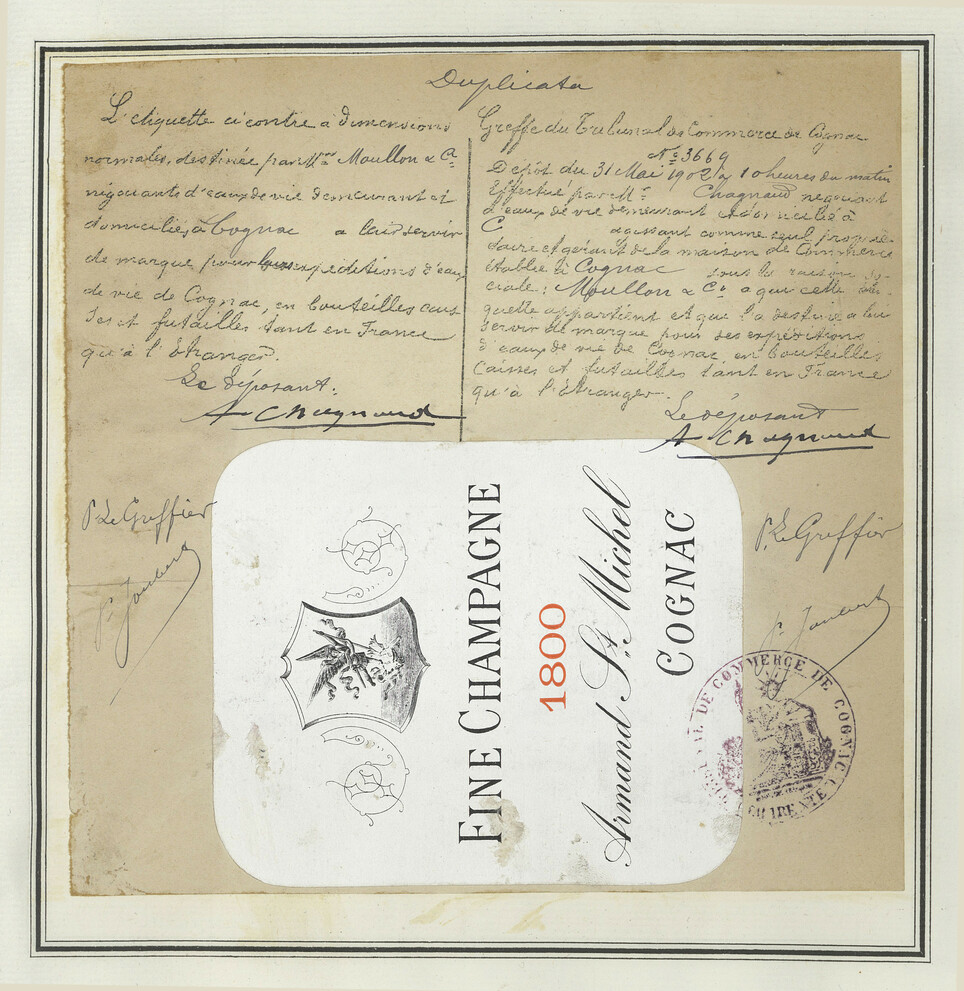 Duplicata
L'etiquette ci contre à dimensions
normales, destinée par Mrs Moullon & Cie
négociants d'eaux de vie demeurant et
domiciliés à Cognac a leur servir
de marque pour leurs expéditions d'eaux
de vie de Cognac, en bouteilles cais
ses et futailles tant en France
qu'à l'Etranger.
Le déposant.
A Chagnaud
P. Le Greffier
P. Joubert
Greffe du Tribunal de Commerce de Cognac
No 3669
Dépot du 31 Mai 1902 à 10 heures du matin
Effectué par Mr Chagnaud négociant
d'eaux de vie demeurant et domicilié à
C agissant comme seul proprié-
taire et gérant de la maison de Commerce
établie à Cognac sous la raison so-
ciale: Moullon & Co a qui cette éti-
quette appartient et qui l'a destinée a leur
servir de marque pour ses expéditions
d'eaux de vie de Cognac, en bouteilles
caisses et futailles tant en France
qu'à l'Etranger.
Le déposant
A Chagnaud
P. Le Greffier
P. Joubert
FINE CHAMPAGNE
1800
Armand St. Michel
COGNAC
DE COMMERCE DE COGNAC